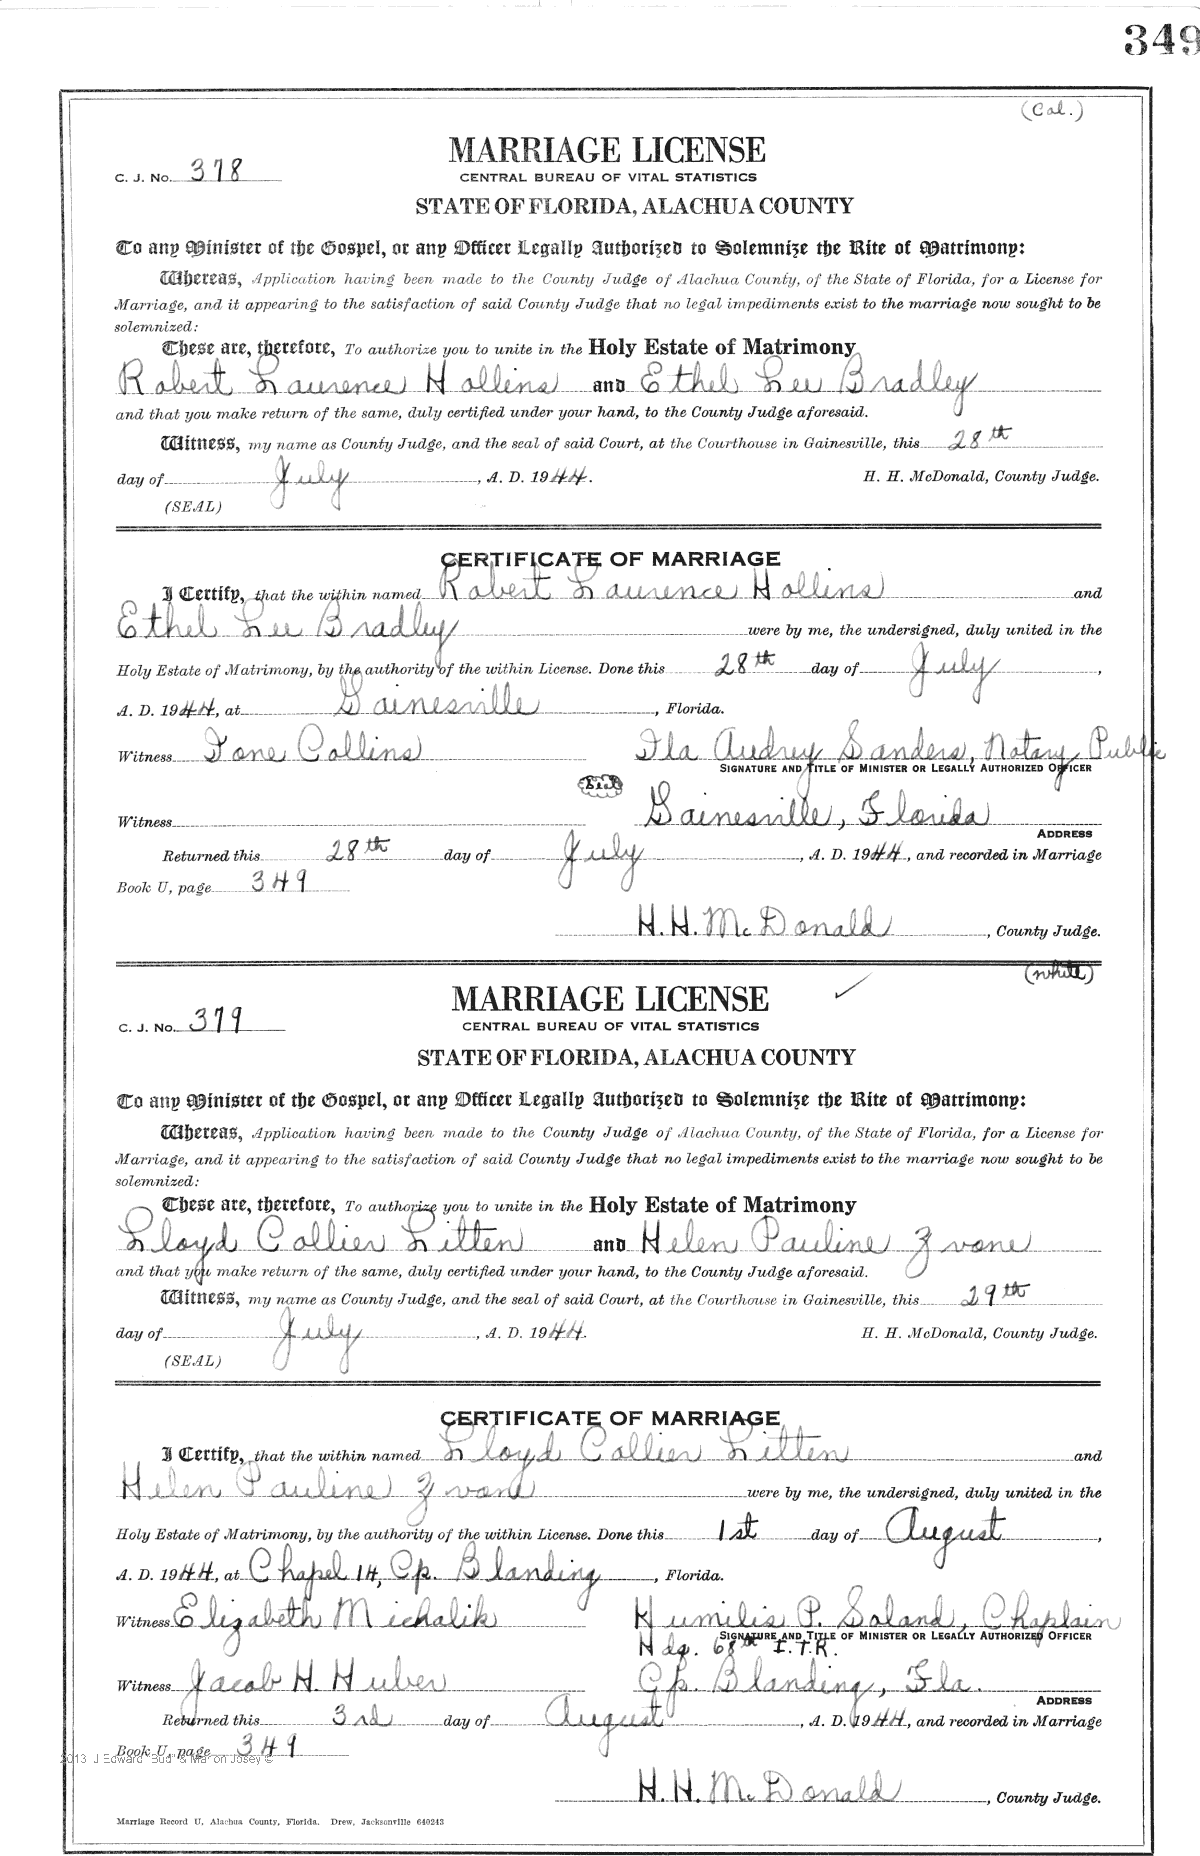 349
(Col.)
MARRIAGE LICENSE
C. J. No. 378
CENTRAL BUREAU OF VITAL STATISTICS
STATE OF FLORIDA, ALACHUA COUNTY
To any Minister of the Gospel, or any Officer Legally Authorized to Solemnize the Rite of Matrimony:
Whereas, Application having been made to the County Judge of Alachua County, of the State of Florida, for a License for
Marriage, and it appearing to the satisfaction of said County Judge that no legal impediments exist to the marriage now sought to be
solemnized:
These are, therefore, To authorize you to unite in the Holy Estate of Matrimony
Robert Laurence Hollins and Ethel Lee Bradley
and that you make return of the same, duly certified under your hand, to the County Judge aforesaid.
Witness, my name as County Judge, and the seal of said Court, at the Courthouse in Gainesville, this 28th
day of July, A. D. 1944. H. H. McDonald, County Judge.
(SEAL)
CERTIFICATE OF MARRIAGE
I Certify, that the within named Robert Laurence Hollins and
Ethel Lee Bradley were by me, the undersigned, duly united in the
Holy Estate of Matrimony, by the authority of the within License. Done this 28th day of July,
A. D. 1944, at Gainesville, Florida.
Witness Ione Collins Ila Audrey Sanders, Notary Public
SIGNATURE AND TITLE OF MINISTER OR LEGALLY AUTHORIZED OFFICER
Seal
Witness Gainesville, Florida
ADDRESS
Returned this 28th day of July, A. D. 1944, and recorded in Marriage
Book U, page 349
H. H. McDonald, County Judge.
(white)
MARRIAGE LICENSE
C. J. No. 379
CENTRAL BUREAU OF VITAL STATISTICS
STATE OF FLORIDA, ALACHUA COUNTY
To any Minister of the Gospel, or any Officer Legally Authorized to Solemnize the Rite of Matrimony:
Whereas, Application having been made to the County Judge of Alachua County, of the State of Florida, for a License for
Marriage, and it appearing to the satisfaction of said County Judge that no legal impediments exist to the marriage now sought to be
solemnized:
These are, therefore, To authorize you to unite in the Holy Estate of Matrimony
Lloyd Collier Litten and Helen Pauline Zvone
and that you make return of the same, duly certified under your hand, to the County Judge aforesaid.
Witness, my name as County Judge, and the seal of said Court, at the Courthouse in Gainesville, this 29th
day of July, A. D. 1944. H. H. McDonald, County Judge.
(SEAL)
CERTIFICATE OF MARRIAGE
I Certify, that the within named Lloyd Collier Litten and
Helen Pauline Zvone were by me, the undersigned, duly united in the
Holy Estate of Matrimony, by the authority of the within License. Done this 1st day of August,
A. D. 1944, at Chapel 14, Cp. Blanding, Florida.
Witness Elizabeth Michalik Humilis P. Soland, Chaplain
SIGNATURE AND TITLE OF MINISTER OR LEGALLY AUTHORIZED OFFICER
Hdq. 68th I.T.R.
Witness Jacob H. Huber Cp. Blanding, Fla.
ADDRESS
Returned this 3rd day of August, A. D. 1944, and recorded in Marriage
Book U, page 349
2013 J Edward "Bud" & Marion Josey ©
H. H. McDonald, County Judge.
Marriage Record U, Alachua County, Florida. Drew, Jacksonville 640243